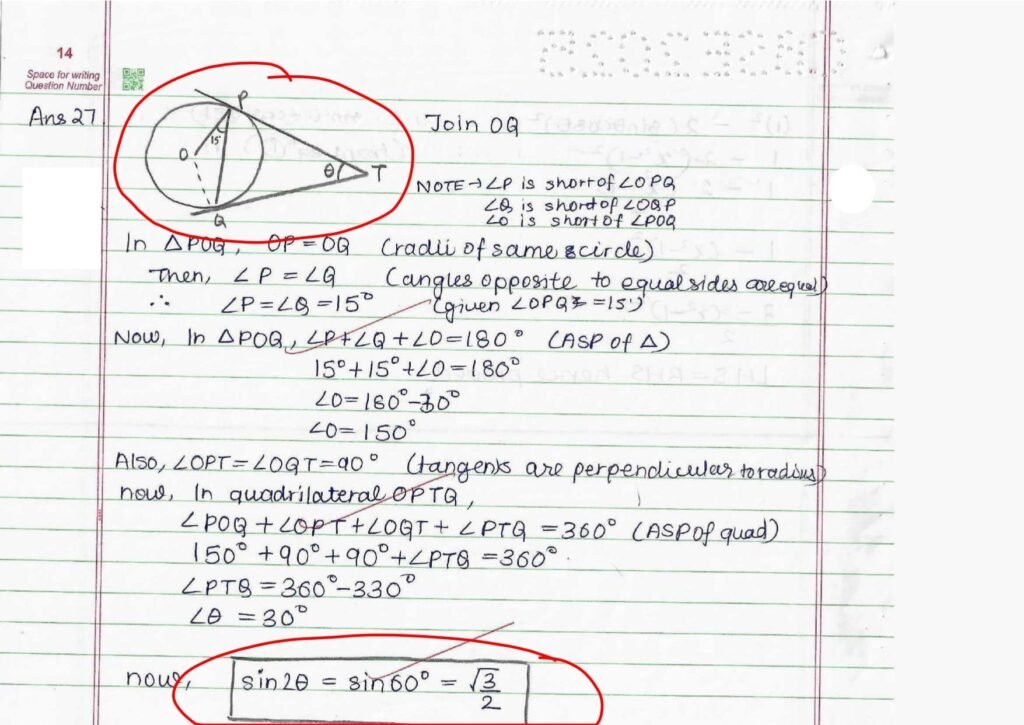 14
Space for writing
Question Number
Ans 27.
P
15°
O
θ
T
Q
Join OQ
NOTE → ∠P is short of ∠OPQ
∠Q is short of ∠OQP
∠O is short of ∠POQ
In △POQ, OP = OQ (radii of same circle)
Then, ∠P = ∠Q (angles opposite to equal sides are equal)
∴ ∠P = ∠Q = 15° (given ∠OPQ = 15°)
Now, In △POQ, ∠P + ∠Q + ∠O = 180° (ASP of △)
15° + 15° + ∠O = 180°
∠O = 180° - 30°
∠O = 150°
Also, ∠OPT = ∠OQT = 90° (tangents are perpendicular to radius)
now, In quadrilateral OPTQ,
∠POQ + ∠OPT + ∠OQT + ∠PTQ = 360° (ASP of quad)
150° + 90° + 90° + ∠PTQ = 360°.
∠PTQ = 360° - 330°
∠θ = 30°
now, sin2θ = sin60° = √3/2